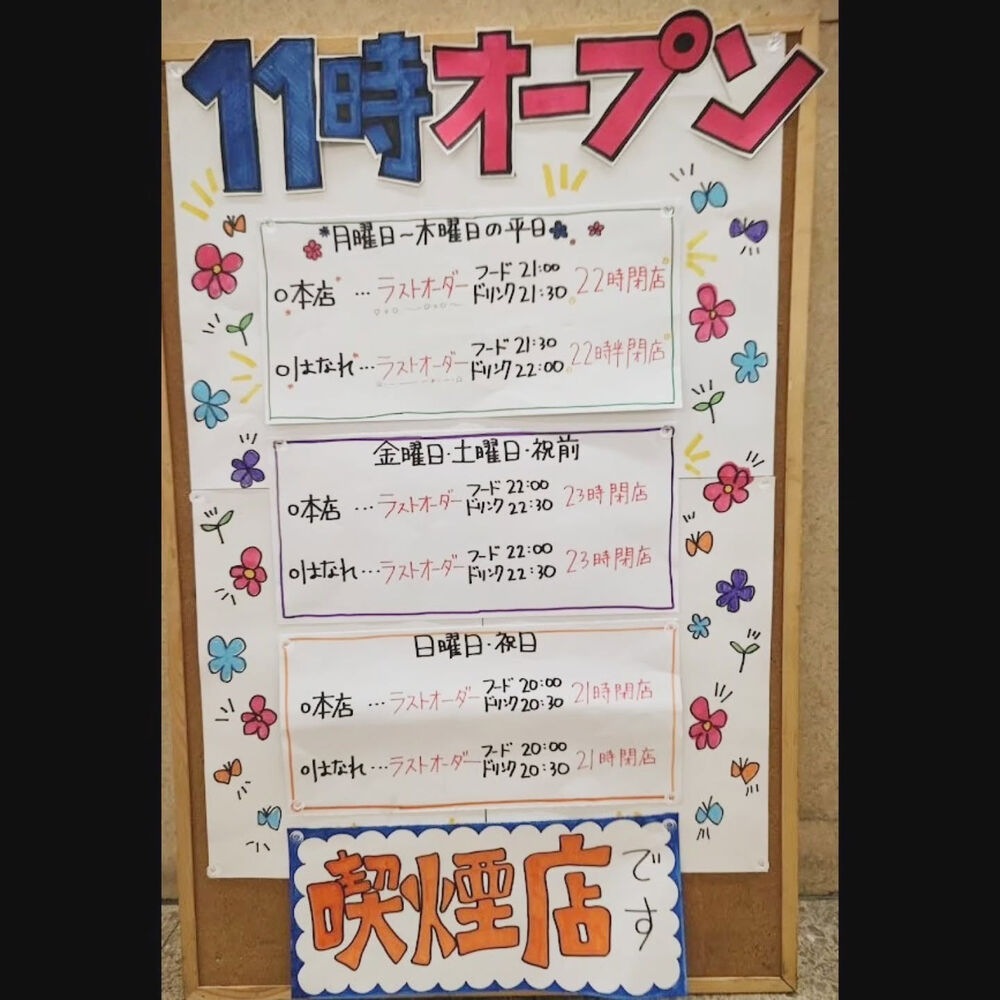 11時オープン
月曜日~木曜日の平日
○本店 …ラストオーダー フード 21:00 ドリンク 21:30 22時閉店
○はなれ…ラストオーダー フード 21:30 ドリンク 22:00 22時半閉店
金曜日・土曜日・祝前
○本店 …ラストオーダー フード 22:00 ドリンク 22:30 23時閉店
○はなれ…ラストオーダー フード 22:00 ドリンク 22:30 23時閉店
日曜日・祝日
○本店 …ラストオーダー フード 20:00 ドリンク 20:30 21時閉店
○はなれ…ラストオーダー フード 20:00 ドリンク 20:30 21時閉店
喫煙店です